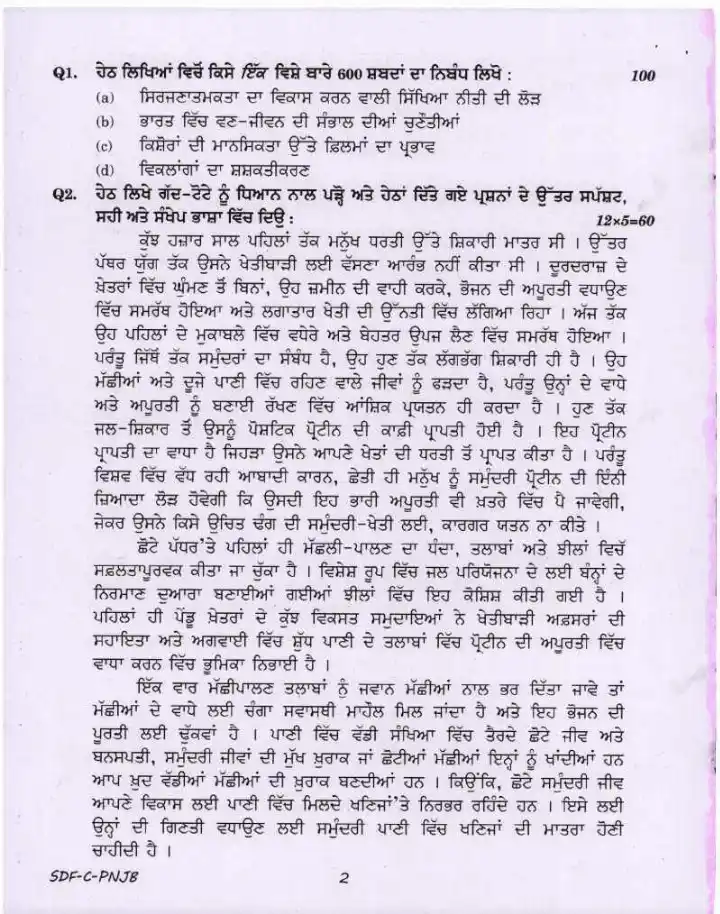 Q1. ਹੇਠ ਲਿਖਿਆਂ ਵਿਚੋਂ ਕਿਸੇ ਇੱਕ ਵਿਸ਼ੇ ਬਾਰੇ 600 ਸ਼ਬਦਾਂ ਦਾ ਨਿਬੰਧ ਲਿਖੋ : 100
(a) ਸਿਰਜਣਾਤਮਕਤਾ ਦਾ ਵਿਕਾਸ ਕਰਨ ਵਾਲੀ ਸਿੱਖਿਆ ਨੀਤੀ ਦੀ ਲੋੜ
(b) ਭਾਰਤ ਵਿੱਚ ਵਣ-ਜੀਵਨ ਦੀ ਸੰਭਾਲ ਦੀਆਂ ਚੁਣੌਤੀਆਂ
(c) ਕਿਸ਼ੋਰਾਂ ਦੀ ਮਾਨਸਿਕਤਾ ਉੱਤੇ ਫ਼ਿਲਮਾਂ ਦਾ ਪ੍ਰਭਾਵ
(d) ਵਿਕਲਾਂਗਾਂ ਦਾ ਸ਼ਸ਼ਕਤੀਕਰਣ
Q2. ਹੇਠ ਲਿਖੇ ਗੱਦ-ਟੋਟੇ ਨੂੰ ਧਿਆਨ ਨਾਲ ਪੜ੍ਹੋ ਅਤੇ ਹੇਠਾਂ ਦਿੱਤੇ ਗਏ ਪ੍ਰਸ਼ਨਾਂ ਦੇ ਉੱਤਰ ਸਪੱਸ਼ਟ,
ਸਹੀ ਅਤੇ ਸੰਖੇਪ ਭਾਸ਼ਾ ਵਿੱਚ ਦਿਉ : 12×5=60
ਕੁੱਝ ਹਜ਼ਾਰ ਸਾਲ ਪਹਿਲਾਂ ਤੱਕ ਮਨੁੱਖ ਧਰਤੀ ਉੱਤੇ ਸ਼ਿਕਾਰੀ ਮਾਤਰ ਸੀ । ਉੱਤਰ
ਪੱਥਰ ਯੁੱਗ ਤੱਕ ਉਸਨੇ ਖੇਤੀਬਾੜੀ ਲਈ ਵੱਸਣਾ ਆਰੰਭ ਨਹੀਂ ਕੀਤਾ ਸੀ । ਦੂਰਦਰਾਜ਼ ਦੇ
ਖ਼ੇਤਰਾਂ ਵਿੱਚ ਘੁੰਮਣ ਤੋਂ ਬਿਨਾਂ, ਉਹ ਜ਼ਮੀਨ ਦੀ ਵਾਹੀ ਕਰਕੇ, ਭੋਜਨ ਦੀ ਅਪੂਰਤੀ ਵਧਾਉਣ
ਵਿੱਚ ਸਮਰੱਥ ਹੋਇਆ ਅਤੇ ਲਗਾਤਾਰ ਖੇਤੀ ਦੀ ਉੱਨਤੀ ਵਿੱਚ ਲੱਗਿਆ ਰਿਹਾ । ਅੱਜ ਤੱਕ
ਉਹ ਪਹਿਲਾਂ ਦੇ ਮੁਕਾਬਲੇ ਵਿੱਚ ਵਧੇਰੇ ਅਤੇ ਬੇਹਤਰ ਉਪਜ ਲੈਣ ਵਿੱਚ ਸਮਰੱਥ ਹੋਇਆ ।
ਪਰੰਤੂ ਜਿੱਥੋਂ ਤੱਕ ਸਮੁੰਦਰਾਂ ਦਾ ਸੰਬੰਧ ਹੈ, ਉਹ ਹੁਣ ਤੱਕ ਲੱਗਭੱਗ ਸ਼ਿਕਾਰੀ ਹੀ ਹੈ । ਉਹ
ਮੱਛੀਆਂ ਅਤੇ ਦੂਜੇ ਪਾਣੀ ਵਿੱਚ ਰਹਿਣ ਵਾਲੇ ਜੀਵਾਂ ਨੂੰ ਫੜਦਾ ਹੈ, ਪਰੰਤੂ ਉਨ੍ਹਾਂ ਦੇ ਵਾਧੇ
ਅਤੇ ਅਪੂਰਤੀ ਨੂੰ ਬਣਾਈ ਰੱਖਣ ਵਿੱਚ ਆਂਸ਼ਿਕ ਪ੍ਰਯਤਨ ਹੀ ਕਰਦਾ ਹੈ । ਹੁਣ ਤੱਕ
ਜਲ-ਸ਼ਿਕਾਰ ਤੋਂ ਉਸਨੂੰ ਪੌਸ਼ਟਿਕ ਪ੍ਰੋਟੀਨ ਦੀ ਕਾਫ਼ੀ ਪ੍ਰਾਪਤੀ ਹੋਈ ਹੈ । ਇਹ ਪ੍ਰੋਟੀਨ
ਪ੍ਰਾਪਤੀ ਦਾ ਵਾਧਾ ਹੈ ਜਿਹੜਾ ਉਸਨੇ ਆਪਣੇ ਖੇਤਾਂ ਦੀ ਧਰਤੀ ਤੋਂ ਪ੍ਰਾਪਤ ਕੀਤਾ ਹੈ । ਪਰੰਤੂ
ਵਿਸ਼ਵ ਵਿੱਚ ਵੱਧ ਰਹੀ ਆਬਾਦੀ ਕਾਰਨ, ਛੇਤੀ ਹੀ ਮਨੁੱਖ ਨੂੰ ਸਮੁੰਦਰੀ ਪ੍ਰੋਟੀਨ ਦੀ ਇੰਨੀ
ਜ਼ਿਆਦਾ ਲੋੜ ਹੋਵੇਗੀ ਕਿ ਉਸਦੀ ਇਹ ਭਾਰੀ ਅਪੂਰਤੀ ਵੀ ਖ਼ਤਰੇ ਵਿੱਚ ਪੈ ਜਾਵੇਗੀ,
ਜੇਕਰ ਉਸਨੇ ਕਿਸੇ ਉਚਿਤ ਢੰਗ ਦੀ ਸਮੁੰਦਰੀ-ਖੇਤੀ ਲਈ, ਕਾਰਗਰ ਯਤਨ ਨਾ ਕੀਤੇ ।
ਛੋਟੇ ਪੱਧਰ'ਤੇ ਪਹਿਲਾਂ ਹੀ ਮੱਛਲੀ-ਪਾਲਣ ਦਾ ਧੰਦਾ, ਤਲਾਬਾਂ ਅਤੇ ਝੀਲਾਂ ਵਿਚੋਂ
ਸਫ਼ਲਤਾਪੂਰਵਕ ਕੀਤਾ ਜਾ ਚੁੱਕਾ ਹੈ । ਵਿਸ਼ੇਸ਼ ਰੂਪ ਵਿੱਚ ਜਲ ਪਰਿਯੋਜਨਾ ਦੇ ਲਈ ਬੰਨ੍ਹਾਂ ਦੇ
ਨਿਰਮਾਣ ਦੁਆਰਾ ਬਣਾਈਆਂ ਗਈਆਂ ਝੀਲਾਂ ਵਿੱਚ ਇਹ ਕੋਸ਼ਿਸ਼ ਕੀਤੀ ਗਈ ਹੈ ।
ਪਹਿਲਾਂ ਹੀ ਪੇਂਡੂ ਖ਼ੇਤਰਾਂ ਦੇ ਕੁੱਝ ਵਿਕਸਤ ਸਮੁਦਾਇਆਂ ਨੇ ਖੇਤੀਬਾੜੀ ਅਫ਼ਸਰਾਂ ਦੀ
ਸਹਾਇਤਾ ਅਤੇ ਅਗਵਾਈ ਵਿੱਚ ਸ਼ੁੱਧ ਪਾਣੀ ਦੇ ਤਲਾਬਾਂ ਵਿੱਚ ਪ੍ਰੋਟੀਨ ਦੀ ਅਪੂਰਤੀ ਵਿੱਚ
ਵਾਧਾ ਕਰਨ ਵਿੱਚ ਭੂਮਿਕਾ ਨਿਭਾਈ ਹੈ ।
ਇੱਕ ਵਾਰ ਮੱਛੀਪਾਲਣ ਤਲਾਬਾਂ ਨੂੰ ਜਵਾਨ ਮੱਛੀਆਂ ਨਾਲ ਭਰ ਦਿੱਤਾ ਜਾਵੇ ਤਾਂ
ਮੱਛੀਆਂ ਦੇ ਵਾਧੇ ਲਈ ਚੰਗਾ ਸਵਾਸਥੀ ਮਾਹੌਲ ਮਿਲ ਜਾਂਦਾ ਹੈ ਅਤੇ ਇਹ ਭੋਜਨ ਦੀ
ਪੂਰਤੀ ਲਈ ਢੁੱਕਵਾਂ ਹੈ । ਪਾਣੀ ਵਿੱਚ ਵੱਡੀ ਸੰਖਿਆ ਵਿੱਚ ਤੈਰਦੇ ਛੋਟੇ ਜੀਵ ਅਤੇ
ਬਨਸਪਤੀ, ਸਮੁੰਦਰੀ ਜੀਵਾਂ ਦੀ ਮੁੱਖ ਖ਼ੁਰਾਕ ਜਾਂ ਛੋਟੀਆਂ ਮੱਛੀਆਂ ਇਨ੍ਹਾਂ ਨੂੰ ਖਾਂਦੀਆਂ ਹਨ
ਆਪ ਖ਼ੁਦ ਵੱਡੀਆਂ ਮੱਛੀਆਂ ਦੀ ਖ਼ੁਰਾਕ ਬਣਦੀਆਂ ਹਨ । ਕਿਉਂਕਿ, ਛੋਟੇ ਸਮੁੰਦਰੀ ਜੀਵ
ਆਪਣੇ ਵਿਕਾਸ ਲਈ ਪਾਣੀ ਵਿੱਚ ਮਿਲਦੇ ਖਣਿਜਾਂ'ਤੇ ਨਿਰਭਰ ਰਹਿੰਦੇ ਹਨ । ਇਸੇ ਲਈ
ਉਨ੍ਹਾਂ ਦੀ ਗਿਣਤੀ ਵਧਾਉਣ ਲਈ ਸਮੁੰਦਰੀ ਪਾਣੀ ਵਿੱਚ ਖਣਿਜਾਂ ਦੀ ਮਾਤਰਾ ਹੋਣੀ
ਚਾਹੀਦੀ ਹੈ ।
SDF-C-PNJB 2